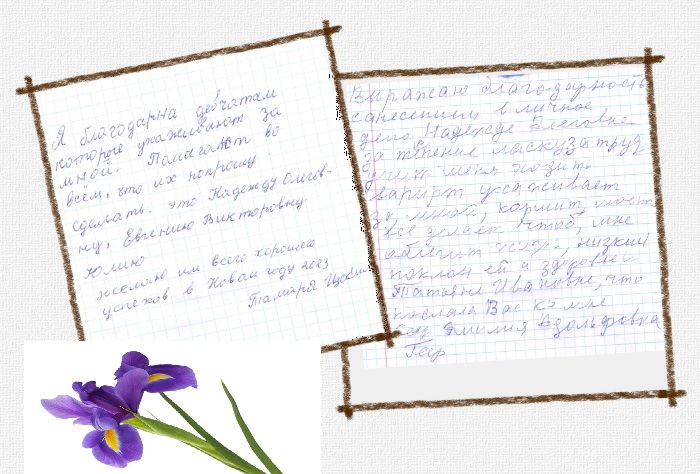 Я благодарна девчатам
которые ухаживают за
мной. Помагают во
всём, что их попрошу
сделать. это Надежду Олегов-
ну, Евгению Викторовну
Юлию
желаю им всего хорошего
успехов в Новом году 2023
Тамара
Выражаю благодарность
с занесением в личное
дело Надежде Олеговне
за терпение ласку за труд
меня
варит ухаживает
за мной, кормит, моет
всё делает чтоб, мне
облегчить низкий
поклон ей и здоровья
Татьяне Ивановне, что
послала Вас ко мне
Эмилия Адольфовна